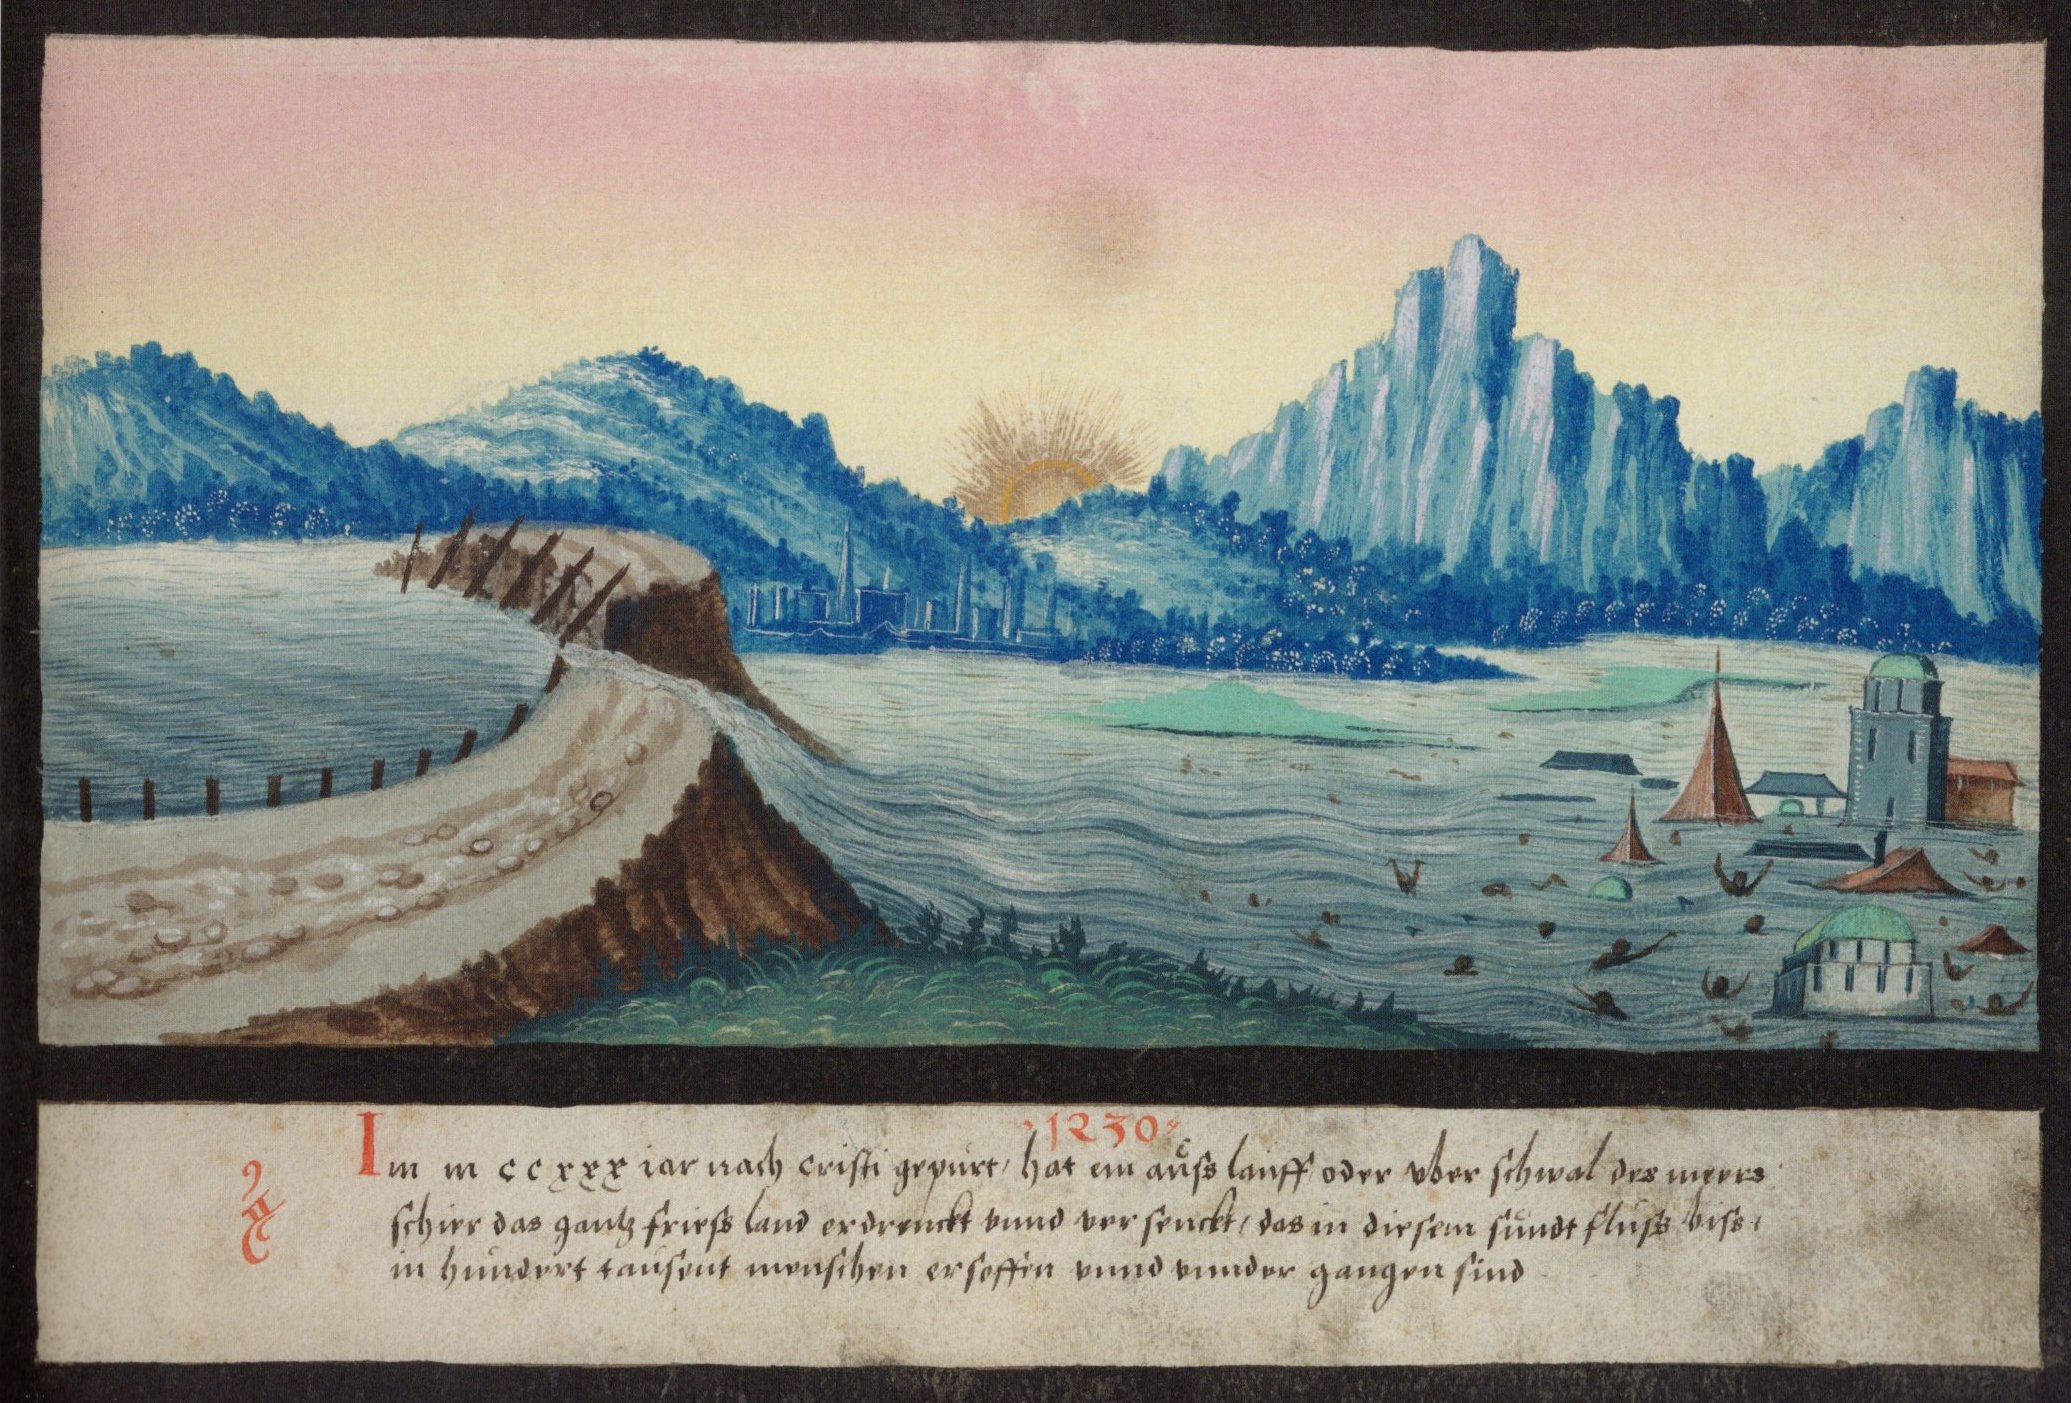 ·1230·
Im m ccxxx iar nach cristi gepurt / hat ein aůss lauff oder vber schwal des meers
schier das gantz friess land erdrenckt vnnd versenckt / das in diesem sůndtfluss biss /
in hundert tausent menschen ersoffen vnnd vnnder gangen sind